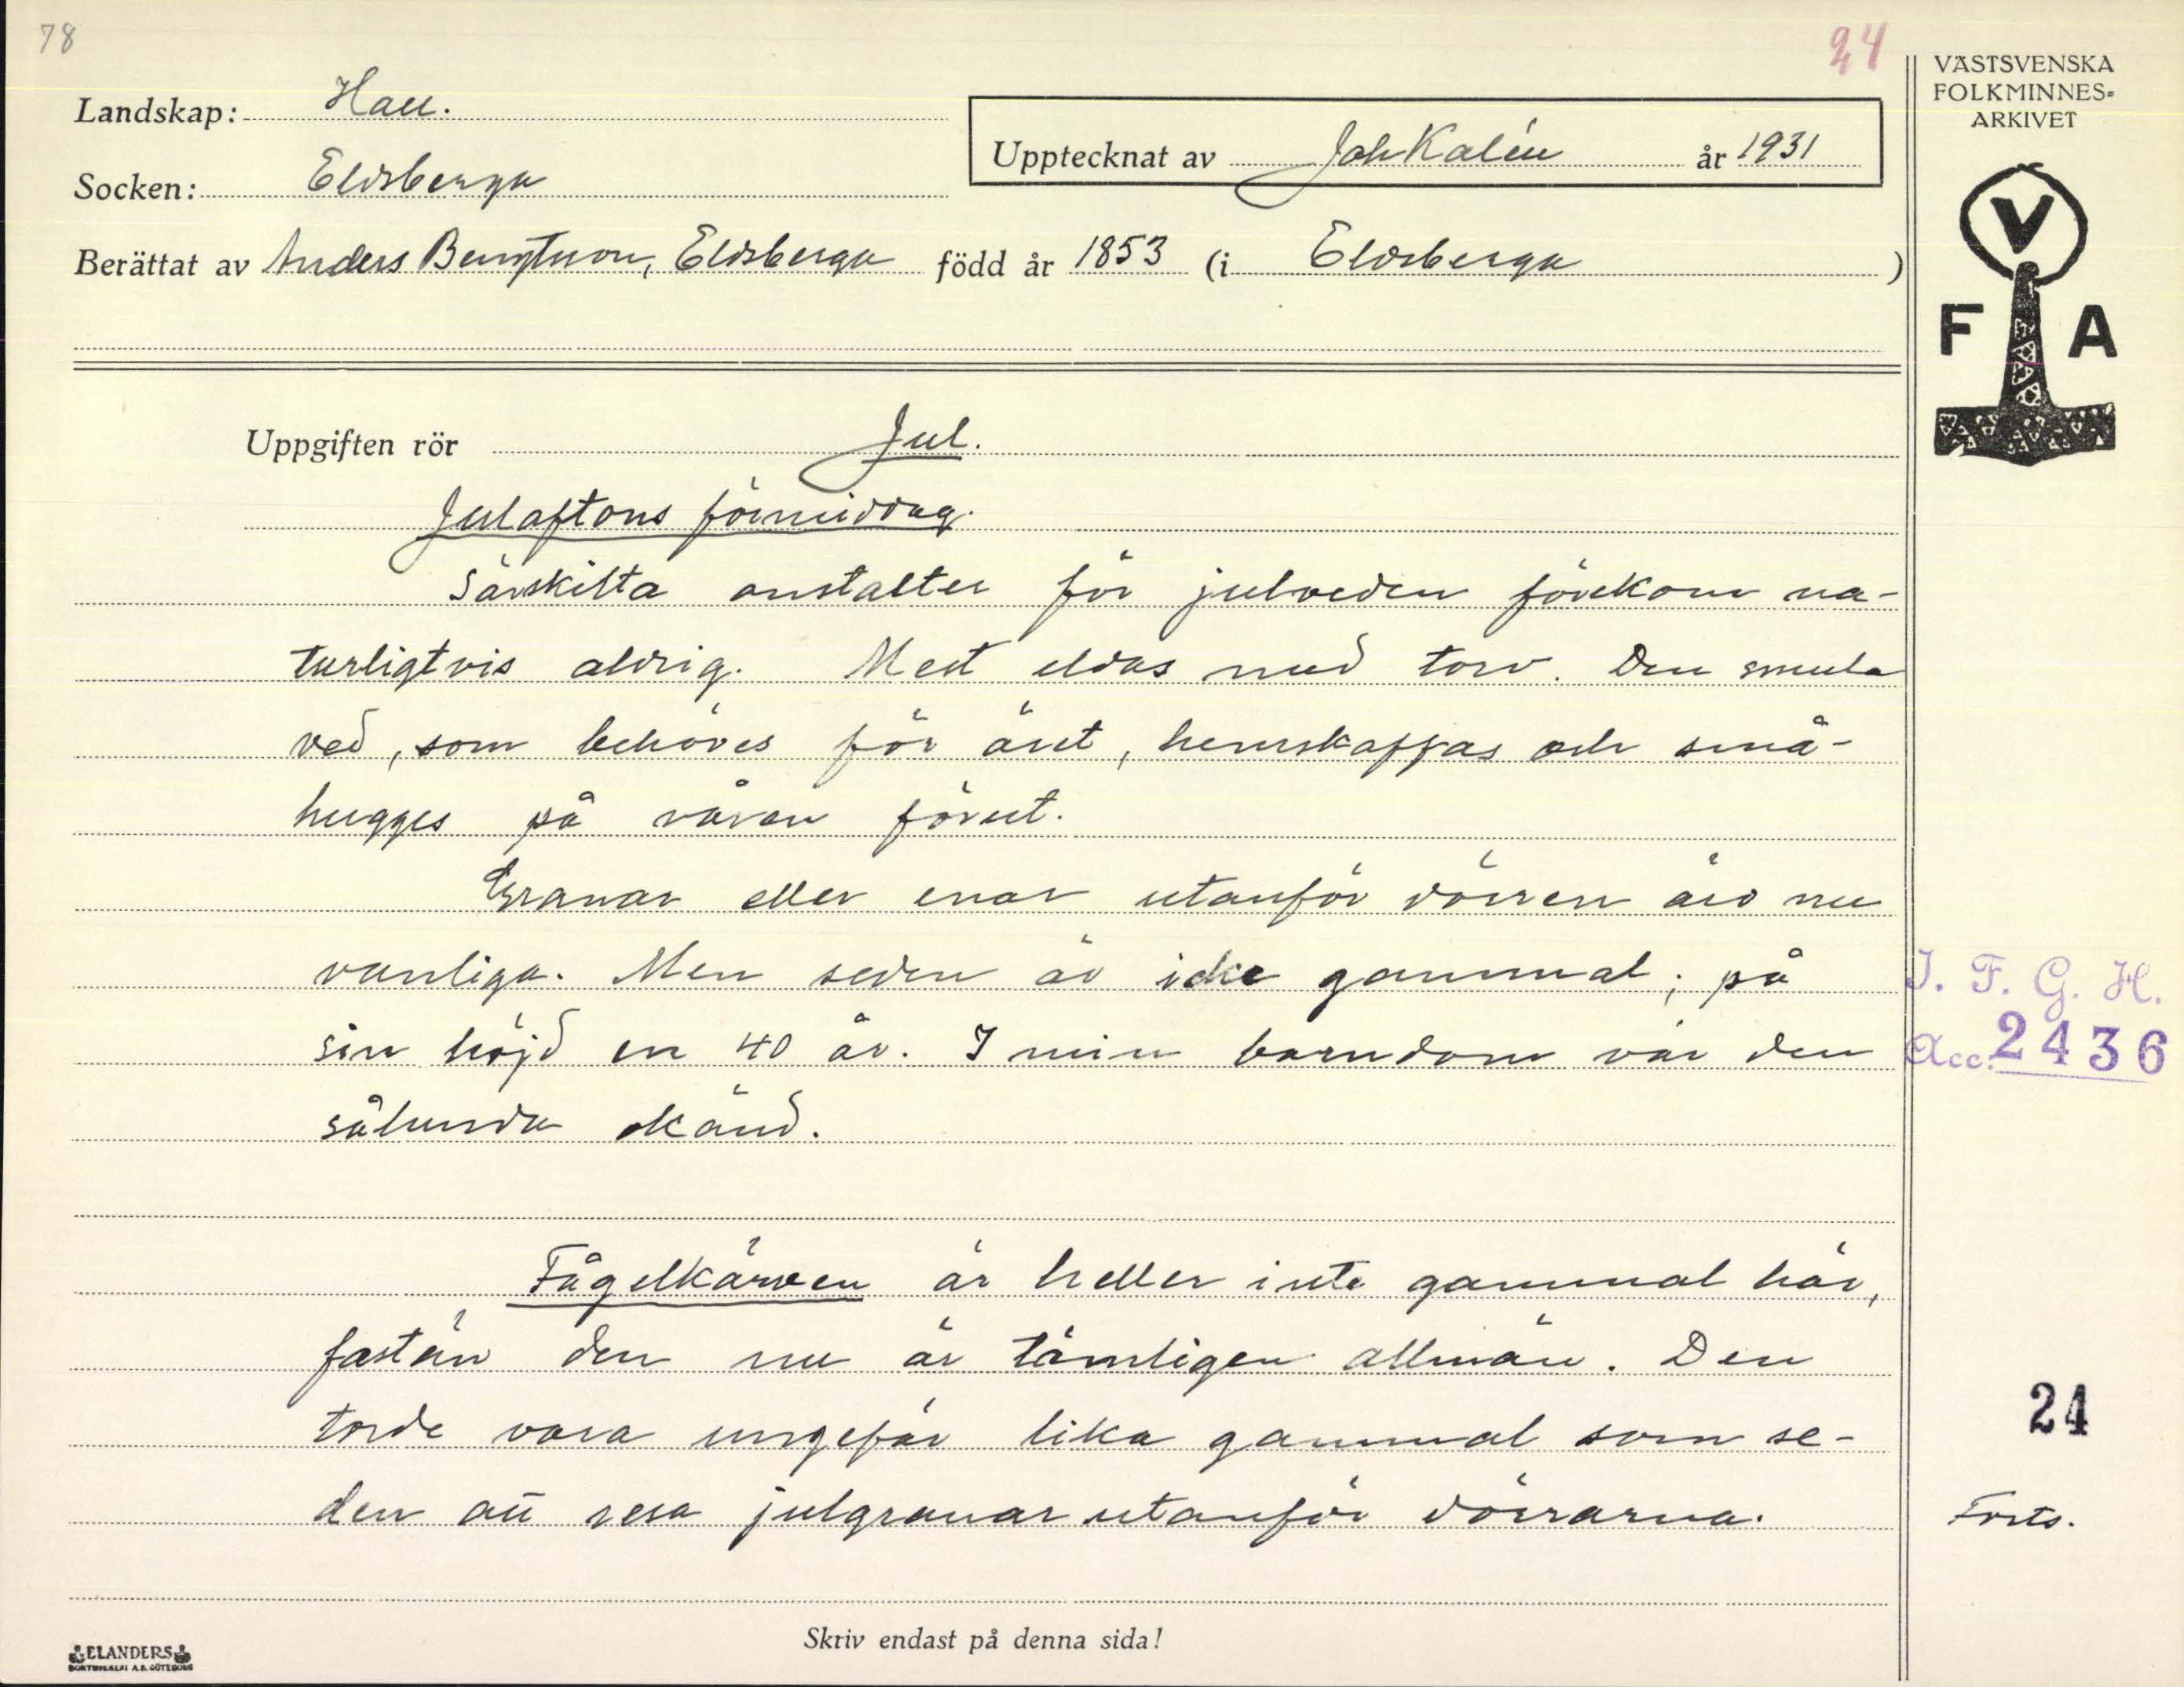 78
24
VÄSTSVENSKA
FOLKMINNES-
ARKIVET
Landskap: Hall.
Upptecknat av Joh Kalén år 1931
Socken: Eldsberga
Berättat av Anders Bengtsson, Eldsberga född år 1853 (i Eldsberga)
V
F A
Uppgiften rör Jul.
Julaftons förmiddag.
Särskilta anstalter för julveden förekom na-
turligtvis aldrig. Mest eldas med torv. Den smula
ved, som behöves för året, hemskaffas och små-
hugges på våren förut.
Granar eller enar utanför dörren äro nu
vanliga. Men seden är icke gammal; på
sin höjd en 40 år. I min barndom var den
sålunda okänd.
I. F. G. H.
Acc. 2436
Fågelkärven är heller inte gammal här,
fastän den nu är tämligen allmän. Den
torde vara ungefär lika gammal som se-
den att resa julgranar utanför dörrarna.
24
Forts.
Skriv endast på denna sida!
ELANDERS
BOKTRYCKERI A.B. GÖTEBORG